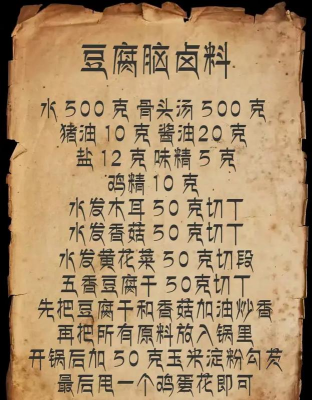 豆腐脑卤料
水 500 克 骨头汤 500 克
猪油 10 克 酱油 20 克
盐 12 克 味精 5 克
鸡精 10 克
水发木耳 50 克切丁
水发香菇 50 克切丁
水发黄花菜 50 克切段
五香豆腐干 50 克切丁
先把豆腐干和香菇加油炒香
再把所有原料放入锅里
开锅后加 50 克玉米淀粉勾芡
最后甩一个鸡蛋花即可